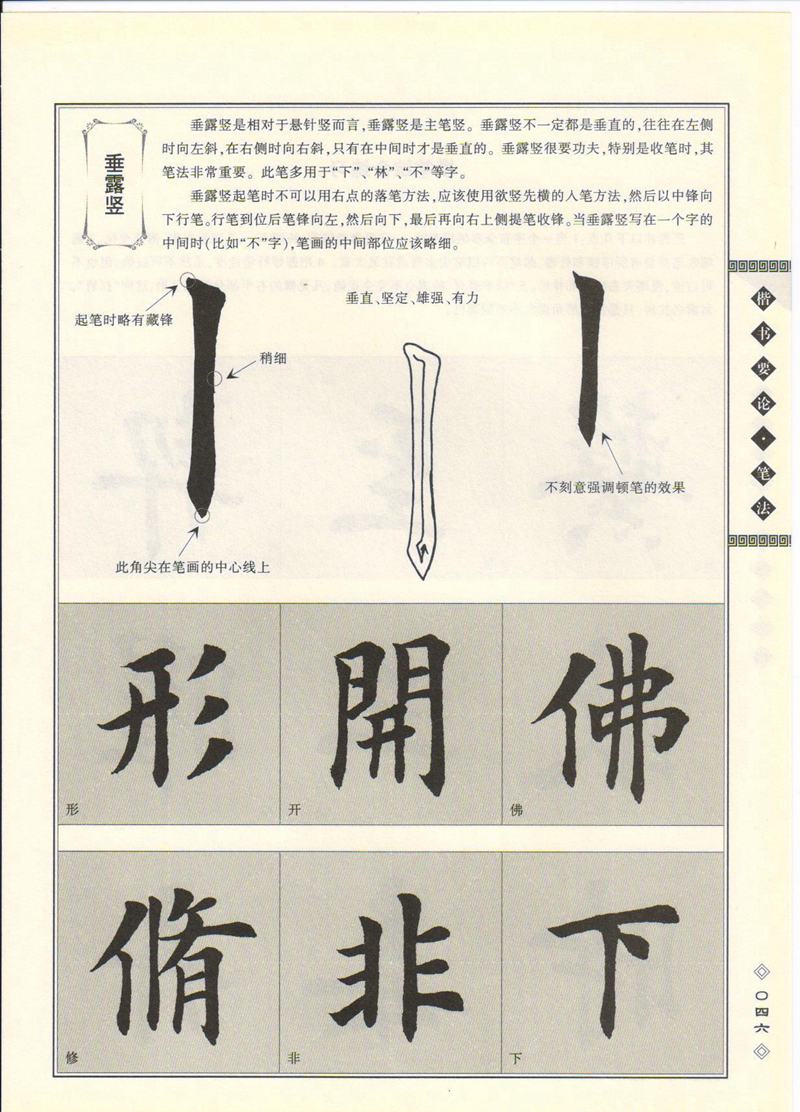 垂露竖
垂露竖是相对于悬针竖而言,垂露竖是主笔竖。垂露竖不一定都是垂直的,往往在左侧
时向左斜,在右侧时向右斜,只有在中间时才是垂直的。垂露竖很要功夫,特别是收笔时,其
笔法非常重要。此笔多用于“下”、“林”、“不”等字。
垂露竖起笔时不可以用右点的落笔方法,应该使用欲竖先横的入笔方法,然后以中锋向
下行笔。行笔到位后笔锋向左,然后向下,最后再向右上侧提笔收锋。当垂露竖写在一个字的
中间时(比如“不”字),笔画的中间部位应该略细。
垂直、坚定、雄强、有力
起笔时略有藏锋
稍细
不刻意强调顿笔的效果
此角尖在笔画的中心线上
楷书要论·笔法
形
開
佛
形
开
佛
脩
非
下
修
非
下
〇四六